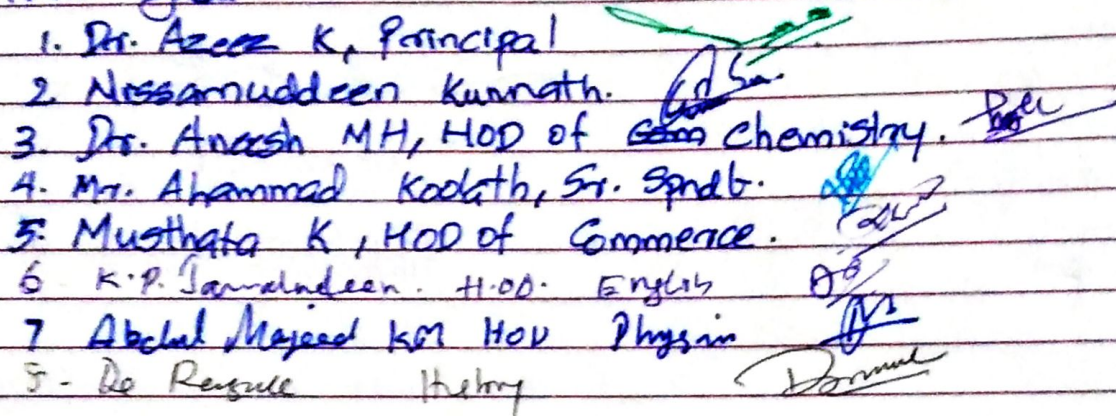 1. Dr. Azeez K, Principal
2 Nissamuddeen Kunnath.
3. Dr. Aneesh MH, HOD of Chemistry.
4. Mr. Ahammad Koolath, Sr. Spndt.
5. Musthafa K, HOD of Commerce.
6 K.P. Jamaludeen. H.OD. English
7 Abdul Majeed KM HOD Physics